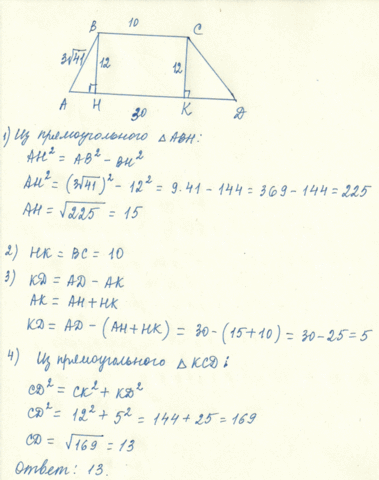 10
B C
3√41 12 12
A H K D
30
1) Из прямоугольного △ABH:
AH² = AB² − BH²
AH² = (3√41)² − 12² = 9·41 − 144 = 369 − 144 = 225
AH = √225 = 15
2) HK = BC = 10
3) KD = AD − AK
AK = AH + HK
KD = AD − (AH + HK) = 30 − (15 + 10) = 30 − 25 = 5
4) Из прямоугольного △KCD:
CD² = CK² + KD²
CD² = 12² + 5² = 144 + 25 = 169
CD = √169 = 13
Ответ: 13.